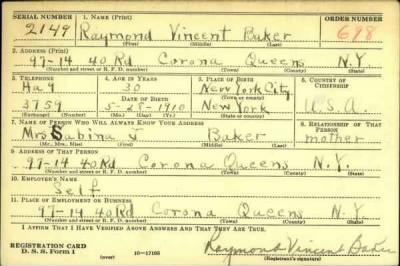 SERIAL NUMBER 1. NAME (Print) ORDER NUMBER
2149 Raymond Vincent Baker 698
(First) (Middle) (Last)
2. ADDRESS (Print)
97-14 40 Rd Corona Queens N.Y.
(Number and street or R. F. D. number) (Town) (County) (State)
3. TELEPHONE 4. AGE IN YEARS 5. PLACE OF BIRTH 6. COUNTRY OF CITIZENSHIP
Ha 9 30 New York City
DATE OF BIRTH (Town or county)
3759 5-28-1910 New York U.S.A.
(Exchange) (Number) (Mo.) (Day) (Yr.) (State or country)
7. NAME OF PERSON WHO WILL ALWAYS KNOW YOUR ADDRESS 8. RELATIONSHIP OF THAT PERSON
Mrs Sabina J Baker mother
(Mr., Mrs., Miss) (First) (Middle) (Last)
9. ADDRESS OF THAT PERSON
97-14 40 Rd Corona Queens N.Y.
(Number and street or R. F. D. number) (Town) (County) (State)
10. EMPLOYER'S NAME
Self
11. PLACE OF EMPLOYMENT OR BUSINESS
97-14 40 Rd Corona Queens N.Y.
(Number and street or R. F. D. number) (Town) (County) (State)
I AFFIRM THAT I HAVE VERIFIED ABOVE ANSWERS AND THAT THEY ARE TRUE.
REGISTRATION CARD
D. S. S. Form 1 (over) 16-17105 Raymond Vincent Baker
(Registrant's signature)